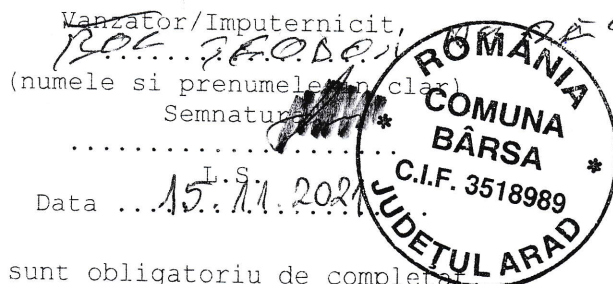 Vanzator/Imputernicit,
(numele si prenumele in clar)
Semnatur
L.S.
Data ...15.11.2021.......
sunt obligatoriu de completat
ROMÂNIA
COMUNA
BÂRSA
C.I.F. 3518989
JUDEȚUL ARAD